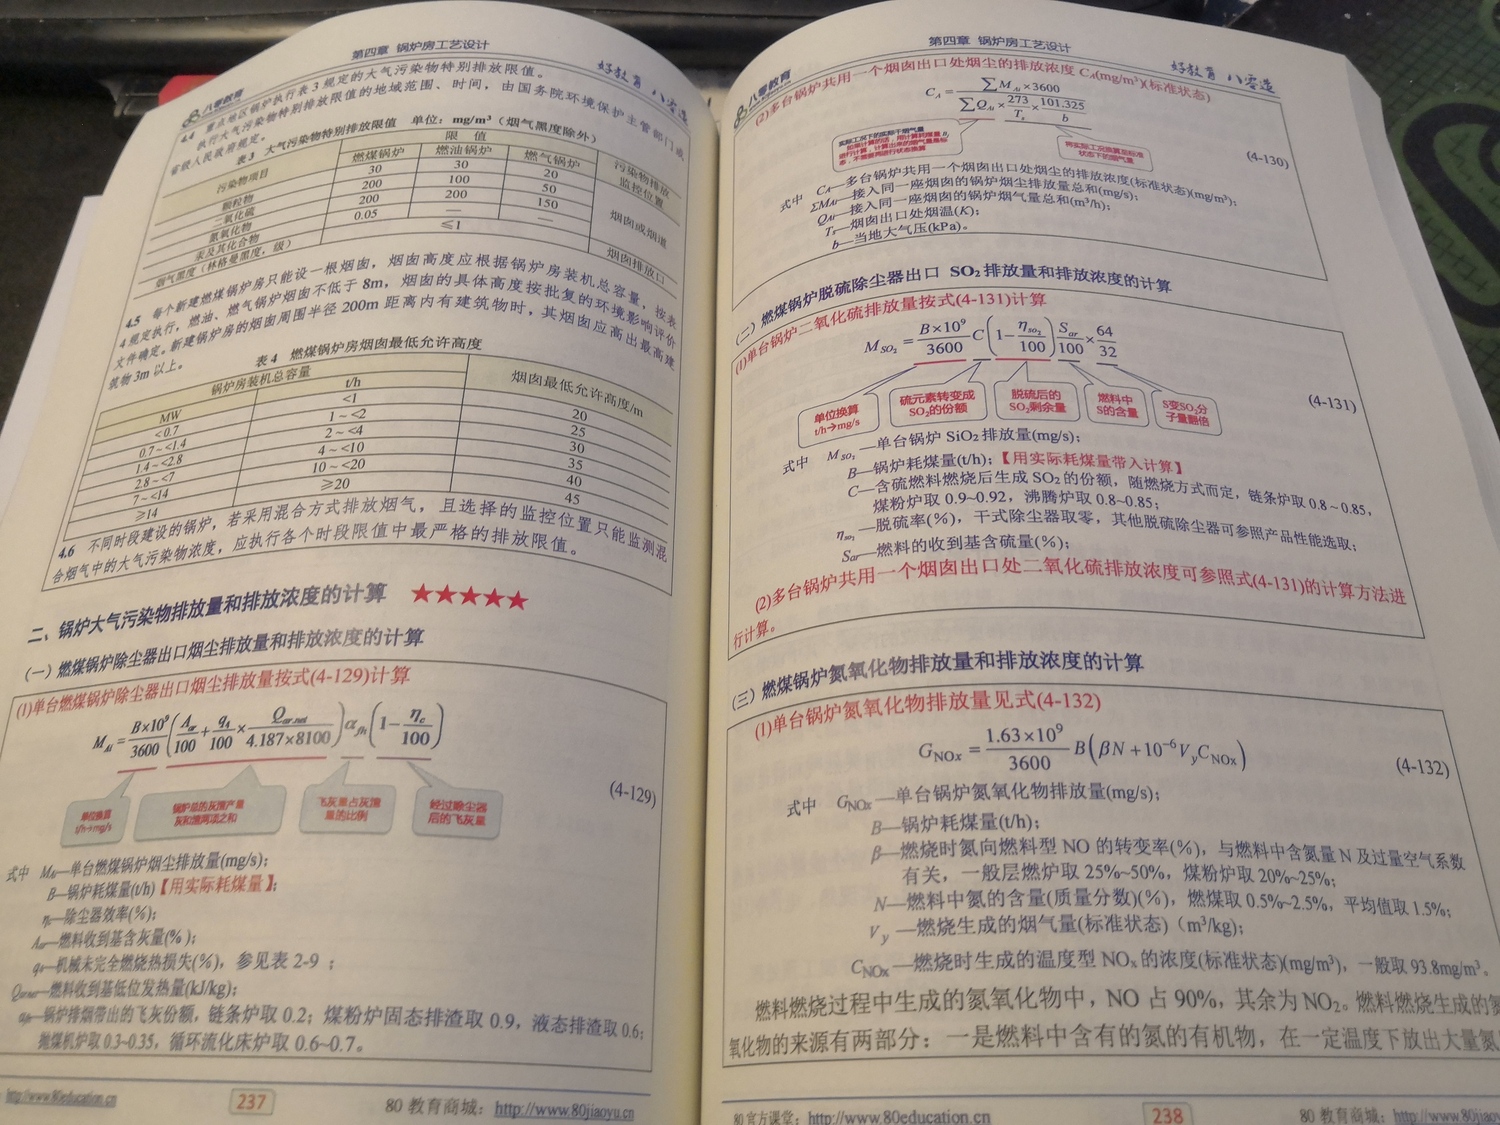 第四章 锅炉房工艺设计
八零教育
好教育 八零造
4.4 重点地区锅炉执行表3规定的大气污染物特别排放限值。
执行大气污染物特别排放限值的地域范围、时间，由国务院环境保护主管部门或
省级人民政府规定。
表3 大气污染物特别排放限值 单位：mg/m³（烟气黑度除外）
污染物项目 限 值 污染物排放监控位置
燃煤锅炉 燃油锅炉 燃气锅炉
颗粒物 30 30 20 烟囱或烟道
二氧化硫 200 100 50
氮氧化物 200 200 150
汞及其化合物 0.05 — —
烟气黑度（林格曼黑度，级） ≤1 烟囱排放口
4.5 每个新建燃煤锅炉房只能设一根烟囱，烟囱高度应根据锅炉房装机总容量，按表
4规定执行，燃油、燃气锅炉烟囱不低于8m，烟囱的具体高度按批复的环境影响评价
文件确定。新建锅炉房的烟囱周围半径200m距离内有建筑物时，其烟囱应高出最高建
筑物3m以上。
表4 燃煤锅炉房烟囱最低允许高度
锅炉房装机总容量 烟囱最低允许高度/m
MW t/h
<0.7 <1 20
0.7~<1.4 1~<2 25
1.4~<2.8 2~<4 30
2.8~<7 4~<10 35
7~<14 10~<20 40
≥14 ≥20 45
4.6 不同时段建设的锅炉，若采用混合方式排放烟气，且选择的监控位置只能监测混
合烟气中的大气污染物浓度，应执行各个时段限值中最严格的排放限值。
二、锅炉大气污染物排放量和排放浓度的计算 ★★★★★
(一）燃煤锅炉除尘器出口烟尘排放量和排放浓度的计算
(1)单台燃煤锅炉除尘器出口烟尘排放量按式(4-129)计算
M_Ai = B×10⁹/3600 (A_ar/100 + q₄/100 × Q_ar.net/4.187×8100) α_fh (1 − η_c/100)
(4-129)
单位换算 t/h→mg/s
锅炉总的灰渣产量 灰和渣两项之和
飞灰量占灰渣量的比例
经过除尘器后的飞灰量
式中 M_Ai—单台燃煤锅炉烟尘排放量(mg/s)；
B—锅炉耗煤量(t/h)【用实际耗煤量】；
η_c—除尘器效率(%)；
A_ar—燃料收到基含灰量(%)；
q₄—机械未完全燃烧热损失(%)，参见表 2-9 ；
Q_ar.net—燃料收到基低位发热量(kJ/kg)；
α_fh—锅炉排烟带出的飞灰份额，链条炉取 0.2；煤粉炉固态排渣取 0.9，液态排渣取 0.6；
抛煤机炉取 0.3~0.35，循环流化床炉取 0.6~0.7。
http://www.80education.cn
237
80 教育商城：http://www.80jiaoyu.cn
第四章 锅炉房工艺设计
八零教育
好教育 八零造
(2)多台锅炉共用一个烟囱出口处烟尘的排放浓度 C_A(mg/m³)(标准状态)
C_A = ∑M_Ai×3600 / ∑Q_Ai × 273/T_s × 101.325/b
(4-130)
将实际工况换算至标准状态下的烟气量
式中 C_A—多台锅炉共用一个烟囱出口处烟尘的排放浓度(标准状态)(mg/m³)；
∑M_Ai—接入同一座烟囱的锅炉烟尘排放量总和(mg/s)；
Q_Ai—接入同一座烟囱的锅炉烟气量总和(m³/h)；
T_s—烟囱出口处烟温(K)；
b—当地大气压(kPa)。
(二）燃煤锅炉脱硫除尘器出口 SO₂ 排放量和排放浓度的计算
(1)单台锅炉二氧化硫排放量按式(4-131)计算
M_SO₂ = B×10⁹/3600 C (1 − η_so₂/100) S_ar/100 × 64/32
(4-131)
单位换算 t/h→mg/s
硫元素转变成SO₂的份额
脱硫后的SO₂剩余量
燃料中S的含量
S变SO₂分子量翻倍
式中 M_SO₂—单台锅炉 SiO₂ 排放量(mg/s)；
B—锅炉耗煤量(t/h)；【用实际耗煤量带入计算】
C—含硫燃料燃烧后生成 SO₂ 的份额，随燃烧方式而定，链条炉取 0.8～0.85，
煤粉炉取 0.9~0.92，沸腾炉取 0.8~0.85；
η_so₂—脱硫率(%)，干式除尘器取零，其他脱硫除尘器可参照产品性能选取；
S_ar—燃料的收到基含硫量(%)；
(2)多台锅炉共用一个烟囱出口处二氧化硫排放浓度可参照式(4-131)的计算方法进
行计算。
(三）燃煤锅炉氮氧化物排放量和排放浓度的计算
(1)单台锅炉氮氧化物排放量见式(4-132)
G_NOx = 1.63×10⁹/3600 B(βN+10⁻⁶V_yC_NOx)
(4-132)
式中 G_NOx—单台锅炉氮氧化物排放量(mg/s)；
B—锅炉耗煤量(t/h)；
β—燃烧时氮向燃料型 NO 的转变率(%)，与燃料中含氮量 N 及过量空气系数
有关，一般层燃炉取 25%~50%，煤粉炉取 20%~25%；
N—燃料中氮的含量(质量分数)(%)，燃煤取 0.5%~2.5%，平均值取 1.5%；
V_y—燃烧生成的烟气量(标准状态)（m³/kg)；
C_NOx—燃烧时生成的温度型 NOx 的浓度(标准状态)(mg/m³)，一般取 93.8mg/m³。
燃料燃烧过程中生成的氮氧化物中，NO 占 90%，其余为 NO₂。燃料燃烧生成的氮
氧化物的来源有两部分：一是燃料中含有的氮的有机物，在一定温度下放出大量氮
80 官方课堂：http://www.80education.cn
238
80 教育商城：http://www.80jiaoyu